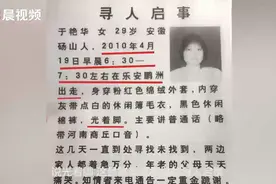 晨视频
寻人启事
于艳华 女 29岁 安徽
砀山人，2010年4月
19日早晨6:30—
7:30左右在乐安鹏洲
出走，身穿粉红色绵绒外套，内穿
灰带点白的休闲薄毛衣，黑色休闲
棉裤，光着脚。主讲普通话（略
带河南商丘口音）。
这几天一直到处寻找未找到，两边
家人都着急万分，年老的父母天天
痛哭。知情者来电通告一定重金跪谢。